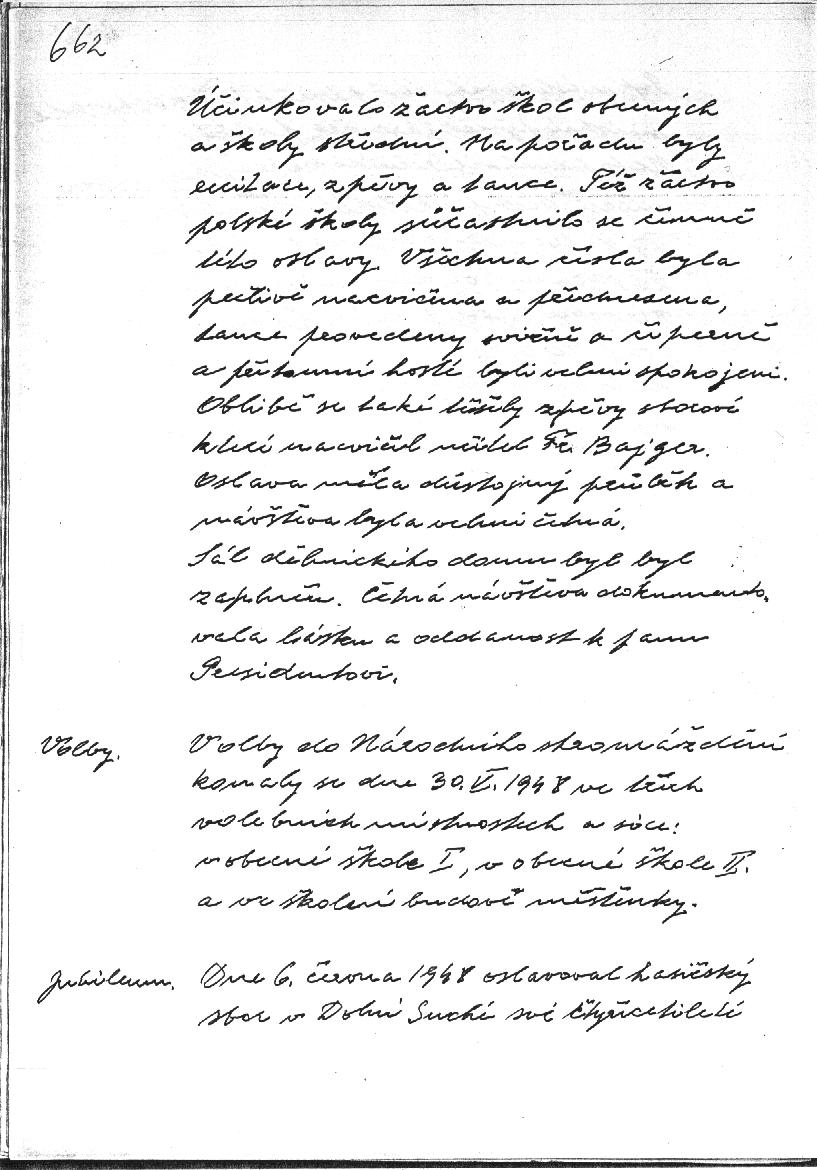 662
Účinkovalo žactvo škol obecných
a školy střední. Na pořadu byly
recitace, zpěvy a tance. Též žactvo
polské školy súčastnilo se činně
této oslavy. Všechna čísla byla
pečlivě nacvičena a přednesena,
tance provedeny svižně a úpravně
a přítomní hosté byli velmi spokojeni.
Oblibě se také těšily zpěvy sborové
které nacvičil učitel Fr. Bajger.
Oslava měla důstojný průběh a
návštěva byla velmi četná.
Sál dělnického domu byl byl
zaplněn. Četná návštěva dokumento-
vala lásku a oddanost k panu
Presidentovi.
Volby. Volby do Národního shromáždění
konaly se dne 30.V. 1948 ve třech
volebních místnostech a sice:
v obecné škole I, v obecné škole II.
a ve školní budově měšťanky.
Jubileum. Dne 6. června 1948 oslavoval hasičský
sbor v Dolní Suché své čtyřicetiletí